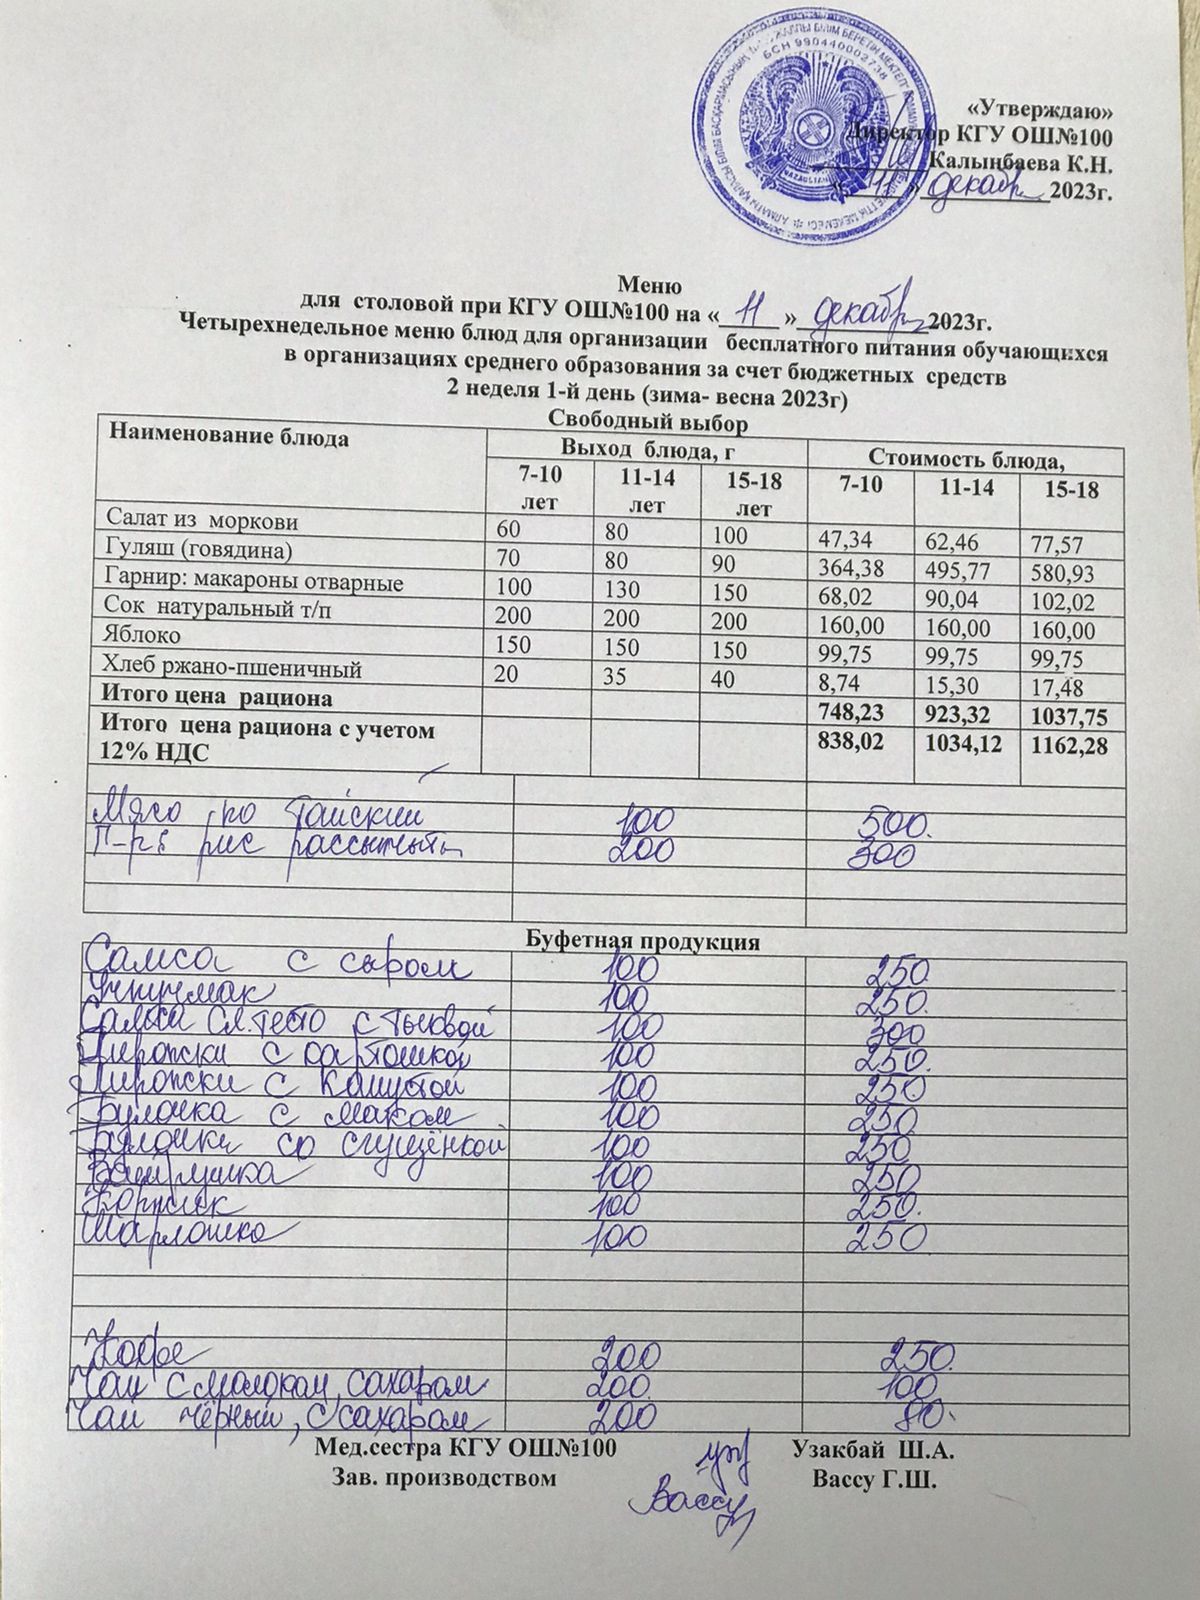 БСН 990440002738
«Утверждаю»
Директор КГУ ОШ№100
Калынбаева К.Н.
« 11 » декабр 2023г.
Меню
для столовой при КГУ ОШ№100 на « 11 » декабр 2023г.
Четырехнедельное меню блюд для организации бесплатного питания обучающихся
в организациях среднего образования за счет бюджетных средств
2 неделя 1-й день (зима- весна 2023г)
Свободный выбор
Наименование блюда Выход блюда, г Стоимость блюда,
7-10 лет 11-14 лет 15-18 лет 7-10 11-14 15-18
Салат из моркови 60 80 100 47,34 62,46 77,57
Гуляш (говядина) 70 80 90 364,38 495,77 580,93
Гарнир: макароны отварные 100 130 150 68,02 90,04 102,02
Сок натуральный т/п 200 200 200 160,00 160,00 160,00
Яблоко 150 150 150 99,75 99,75 99,75
Хлеб ржано-пшеничный 20 35 40 8,74 15,30 17,48
Итого цена рациона 748,23 923,32 1037,75
Итого цена рациона с учетом 838,02 1034,12 1162,28
12% НДС
Мясо по тайский 100 500.
Г-р: рис рассыпчаты 200 300
Буфетная продукция
Самса с сыром 100 250
Учпучмак 100 250.
Самса сл.тесто с тыквой 100 300
Пирожки с картошкой 100 250.
Пирожки с капустой 100 250
Булочка с маком 100 250
Булочки со сгущёнкой 100 250
Ватрушка 100 250
Коржик 100 250.
Шарлотка 100 250
Кофе 200 250.
Чай с молоком, сахаром 200 100
Чай чёрный, с сахаром 200 80.
Мед.сестра КГУ ОШ№100 Узакбай Ш.А.
Зав. производством Вассу Вассу Г.Ш.